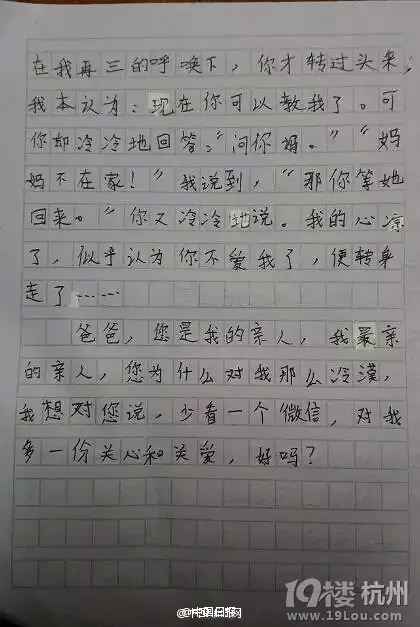 在我再三的呼唤下，你才转过头来，
我本认为：现在你可以教我了。可
你却冷冷地回答："问你妈。""妈
妈不在家！"我说到，"那你等她
回来。"你又冷冷地说。我的心凉
了，似乎认为你不爱我了，便转身
走了……
爸爸，您是我的亲人，我最亲
的亲人，您为什么对我那么冷漠，
我想对您说，少看一个微信，对我
多一份关心和关爱，好吗？
@中国日报网
19楼 杭州
www.19Lou.com